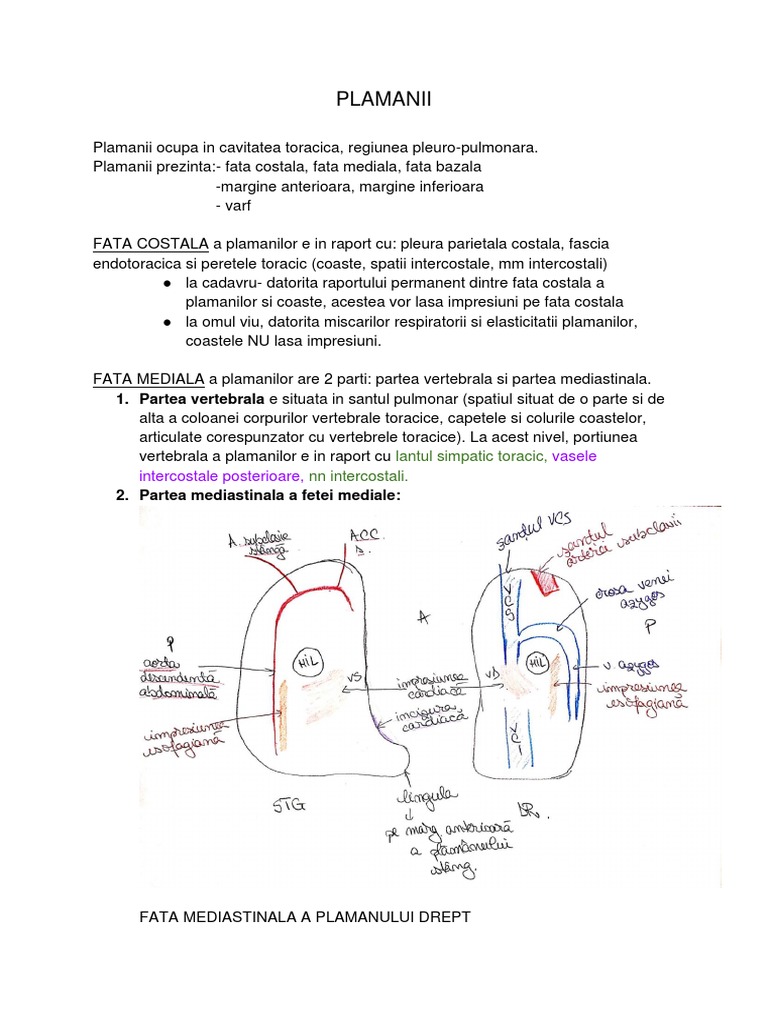 PLAMANII
Plamanii ocupa in cavitatea toracica, regiunea pleuro-pulmonara.
Plamanii prezinta:- fata costala, fata mediala, fata bazala
-margine anterioara, margine inferioara
- varf
FATA COSTALA a plamanilor e in raport cu: pleura parietala costala, fascia
endotoracica si peretele toracic (coaste, spatii intercostale, mm intercostali)
● la cadavru- datorita raportului permanent dintre fata costala a
plamanilor si coaste, acestea vor lasa impresiuni pe fata costala
● la omul viu, datorita miscarilor respiratorii si elasticitatii plamanilor,
coastele NU lasa impresiuni.
FATA MEDIALA a plamanilor are 2 parti: partea vertebrala si partea mediastinala.
1. Partea vertebrala e situata in santul pulmonar (spatiul situat de o parte si de
alta a coloanei corpurilor vertebrale toracice, capetele si colurile coastelor,
articulate corespunzator cu vertebrele toracice). La acest nivel, portiunea
vertebrala a plamanilor e in raport cu lantul simpatic toracic, vasele
intercostale posterioare, nn intercostali.
2. Partea mediastinala a fetei mediale:
A. subclavie
stângă
ACC
s.
șanțul VCS
șanțul
artera subclavii
VCS
crosa venei
azygos
A
P
P
aorta
descendentă
abdominală
HIL
VS
impresiunea
cardiacă
VD
HIL
v. azygos
impresiunea
esofagiană
incizura
cardiacă
impresiunea
esofagiană
VCI
STG
lingula
DR.
pe marg. anterioară
a plămânului
stâng.
FATA MEDIASTINALA A PLAMANULUI DREPT